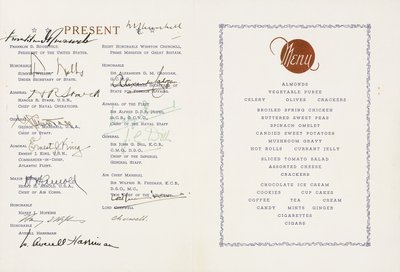 PRESENT
Franklin D Roosevelt
FRANKLIN D. ROOSEVELT,
PRESIDENT OF THE UNITED STATES.
HONORABLE
SUMNER WELLES
UNDER SECRETARY OF STATE
ADMIRAL
H R Stark
HAROLD R. STARK, U.S.N.
CHIEF OF NAVAL OPERATIONS
GENERAL
GEORGE C. MARSHALL, U.S.A.
CHIEF OF STAFF.
ADMIRAL
Ernest J. King
ERNEST J. KING, U.S.N.
COMMANDER-IN-CHIEF,
ATLANTIC FLEET.
MAJOR GENERAL
HENRY H. ARNOLD, U.S.A.
CHIEF OF AIR CORPS.
HONORABLE
HARRY L. HOPKINS
Harry L Hopkins
HONORABLE
AVERELL HARRIMAN
W. Averell Harriman
Winston S. Churchill
RIGHT HONORABLE WINSTON CHURCHILL,
PRIME MINISTER OF GREAT BRITAIN.
HONORABLE
SIR ALEXANDER G. M. CADOGAN,
STATE FOR FOREIGN AFFAIRS.
ADMIRAL OF THE FLEET
SIR ALFRED D.P.R. POUND,
G.C.B., G.C.V.O.
CHIEF OF THE NAVAL STAFF
GENERAL
J. G. Dill
SIR JOHN G. DILL, K.C.B.
C.M.G., D.S.O.
CHIEF OF THE IMPERIAL
GENERAL STAFF.
AIR CHIEF MARSHAL
SIR WILFRID R. FREEMAN, K.C.B.
D.S.O., M.C.
LORD CHERWELL
Cherwell
Menu
ALMONDS
VEGETABLE PUREE
CELERY OLIVES CRACKERS
BROILED SPRING CHICKEN
BUTTERED SWEET PEAS
SPINACH OMELET
CANDIED SWEET POTATOES
MUSHROOM GRAVY
HOT ROLLS CURRANT JELLY
SLICED TOMATO SALAD
ASSORTED CHEESE
CRACKERS
CHOCOLATE ICE CREAM
COOKIES CUP CAKES
COFFEE TEA CREAM
CANDY MINTS GINGER
CIGARETTES
CIGARS